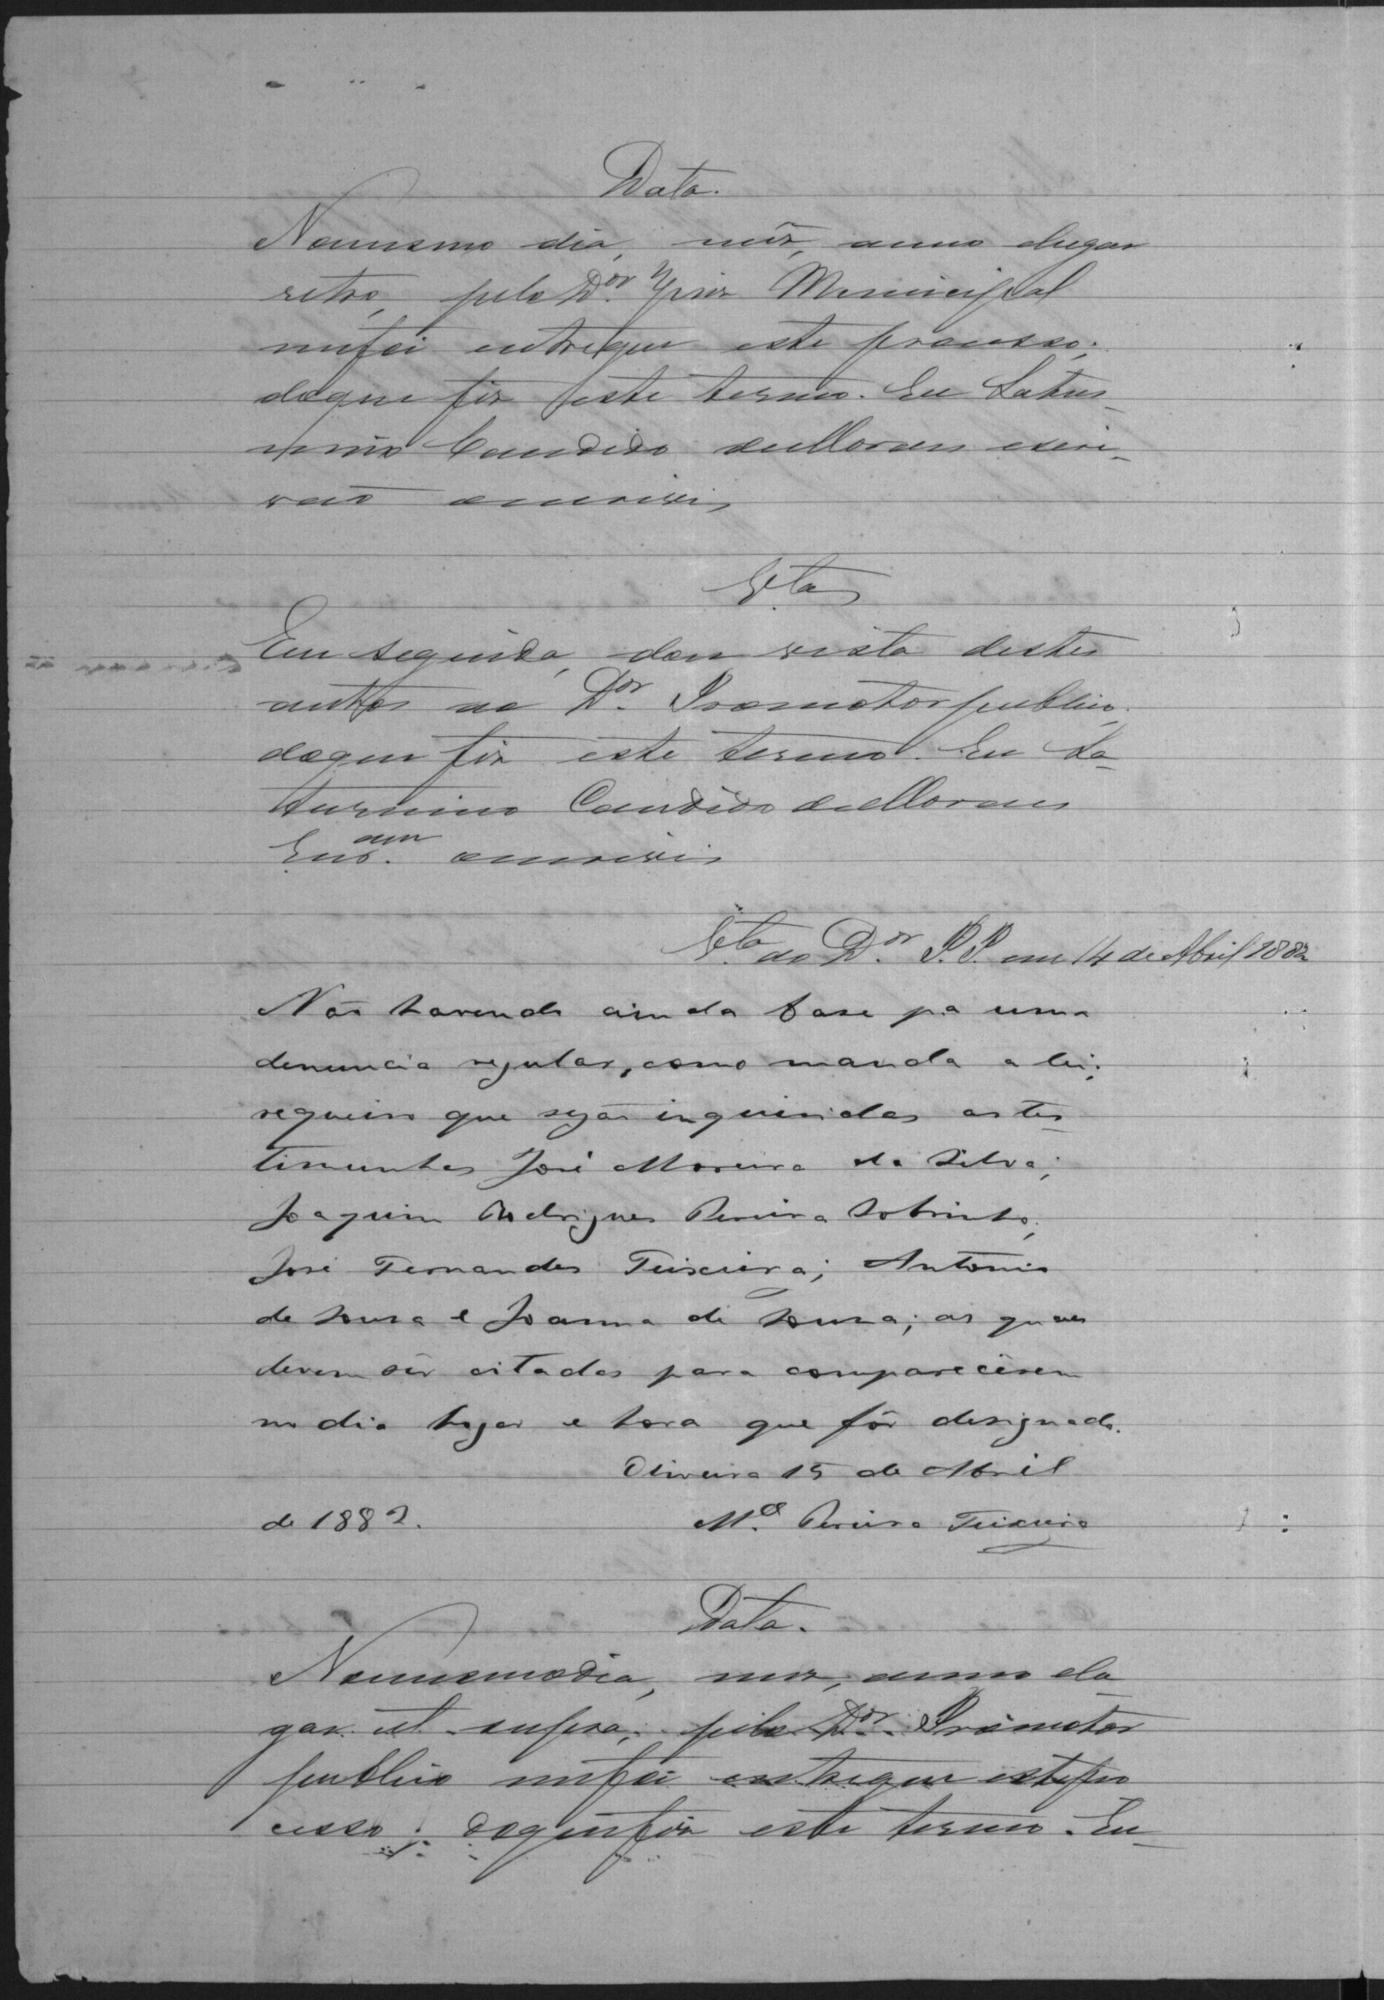 Data.
Nomesmo dia, mêz, anno elugar
retro, pelo D.or Juiz Municipal
mefoi entregue este processo;
doque fiz este termo. Eu Satur
nino Candido deMoraes escri-
vaõ oescrevi,
V.ta
Em seguida, dou vista destes
autos ao D.or Promotor publico;
doque fiz este termo. Eu Sa-
turnino Candido deMoraes
oescrevi
V.ta ao D.or P. P. em 14 de Abril 1882
Não havendo ainda base pa uma
denuncia regular, como manda a lei;
requeiro que sejão inquiridas as tes
timunhas José Moreira da Silva;
Joaquim Rodrigues Pereira Sobrinho;
José Fernandes Teixeira; Antonio
de Souza e Joanna de Souza; as quaes
devem sêr citadas para comparecêrem
no dia lugar e hora que fôr designado.
Oliveira 15 de Abril
de 1882. M.el Pereira Teixeira
Data.
Nomesmodia, mez, anno elu
gar ut supra, pelo D.or Promotor
publico mefoi entregue estepro
cesso; doquefiz este termo. Eu